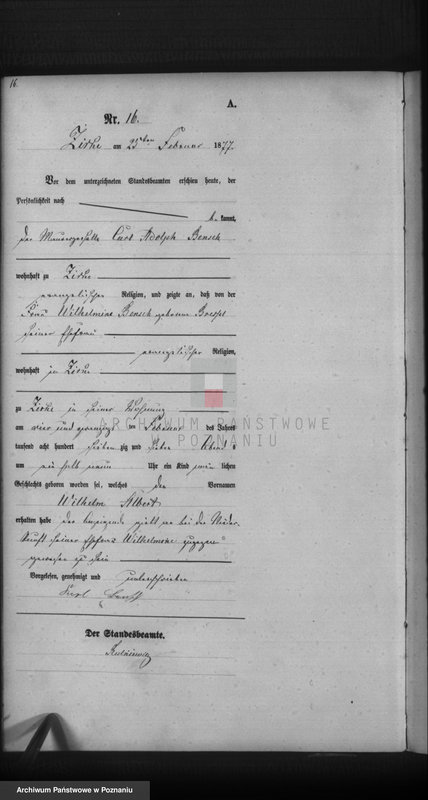 16.
A.
Nr. 16.
Zirke am 25ten Februar 1877.
Vor dem unterzeichneten Standesbeamten erschien heute, der
Persönlichkeit nach
kannt,
der Maurergeselle Carl Adolph Bensch
wohnhaft zu Zirke
evangelischer Religion, und zeigte an, daß von der
Frau Wilhelmine Bensch geborene
seiner Ehefrau
evangelischer Religion,
wohnhaft in Zirke
zu Zirke in seiner Wohnung
am vier und zwanzigsten Februar des Jahres
tausend acht hundert siebenzig und sieben Abends
um ein halb neun Uhr ein Kind männlichen
Geschlechts geboren worden sei, welches den Vornamen
Wilhelm Albert
erhalten habe der Anzeigende giebt an bei der Nieder
kunft seiner Ehefrau Wilhelmine zugegen
gewesen zu sein
Vorgelesen, genehmigt und unterschrieben
Karl Bensch
Der Standesbeamte.
ARCHIWUM PAŃSTWOWE
W POZNANIU
Archiwum Państwowe w Poznaniu